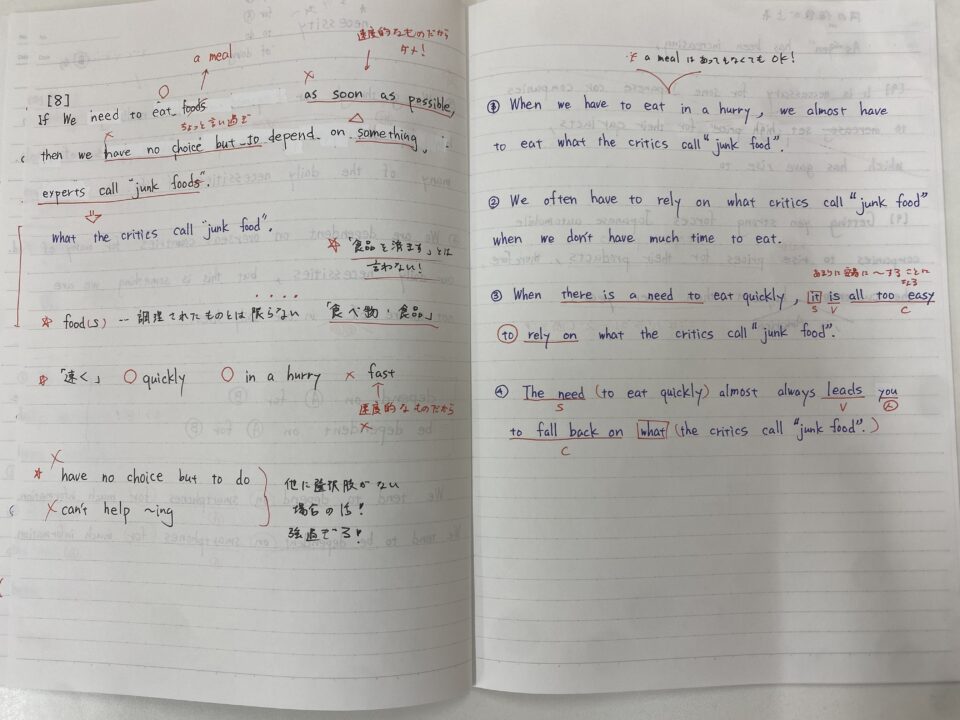 速度的なものだから
ダメ!
a meal
[8]
If We need to eat foods as soon as possible,
ちょっと言い過ぎ
then we have no choice but to depend on something
experts call "junk foods".
what the critics call "junk food".
「食品を済ます」とは
言わない!
food(s) -- 調理されたものとは限らない 「食べ物・食品」
「速く」 quickly in a hurry × fast
速度的なものだから
×
have no choice but to do
can't help ~ing
他に選択肢がない
場合の話!
強過ぎる!
※ a meal はあってもなくても OK!
① When we have to eat in a hurry, we almost have
to eat what the critics call "junk food".
② We often have to rely on what critics call "junk food"
when we don't have much time to eat.
あまりに容易に~することに
なる
③ When there is a need to eat quickly, it is all too easy
S V C
to rely on what the critics call "junk food".
④ The need (to eat quickly) almost always leads you
S V
to fall back on what (the critics call "junk food".)
C